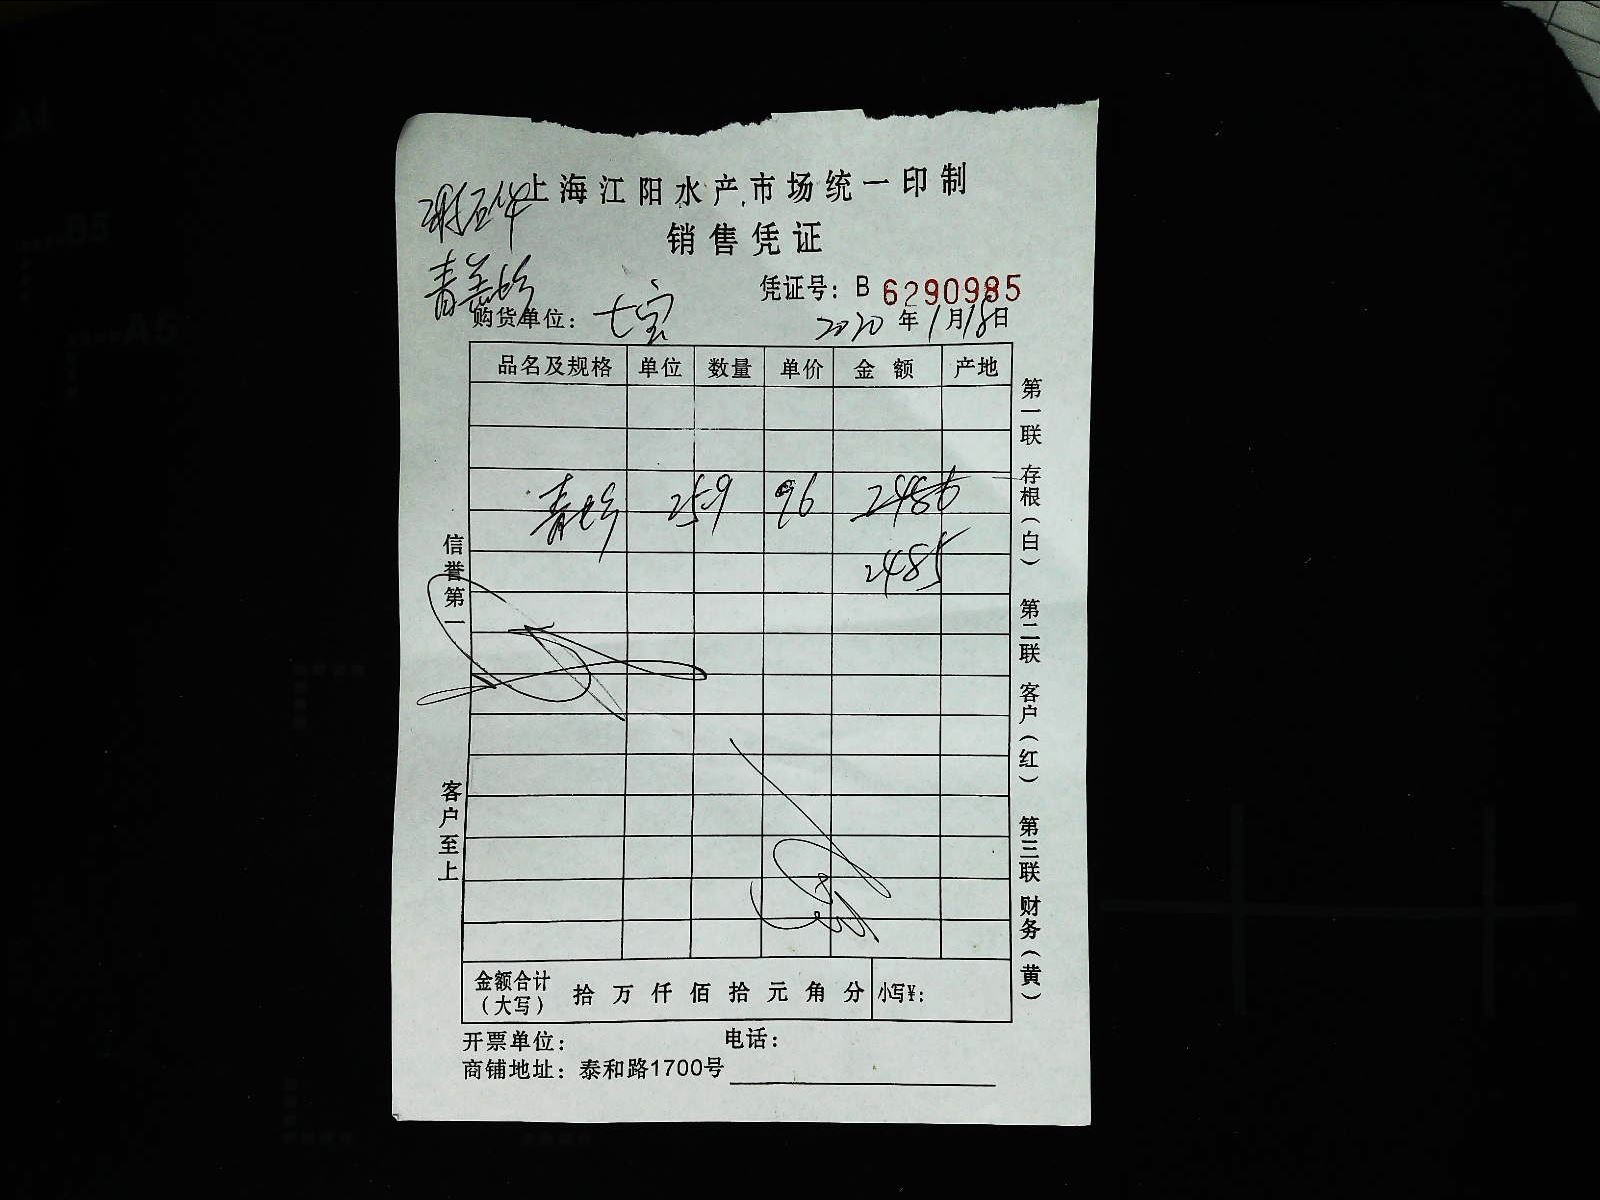 上海江阳水产市场统一印制
销售凭证
凭证号：B 6290985
购货单位：七宝 2020年1月18日
品名及规格 单位 数量 单价 金额 产地
259 96 2486
2485
信誉第一
客户至上
第一联 存根（白） 第二联 客户（红） 第三联 财务（黄）
金额合计（大写） 拾 万 仟 佰 拾 元 角 分 小写¥：
开票单位： 电话：
商铺地址：泰和路1700号